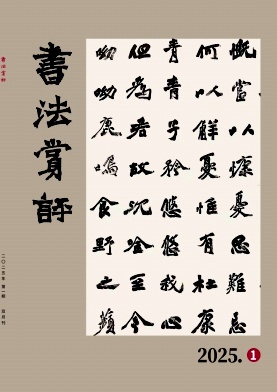 書法賞評
書法賞評
慨當以慷憂思難忘
何以解憂惟有杜康
青青子衿悠悠我心
但為君故沈吟至今
呦呦鹿鳴食野之蘋
二〇二五年 第一期 双月刊
2025. 1